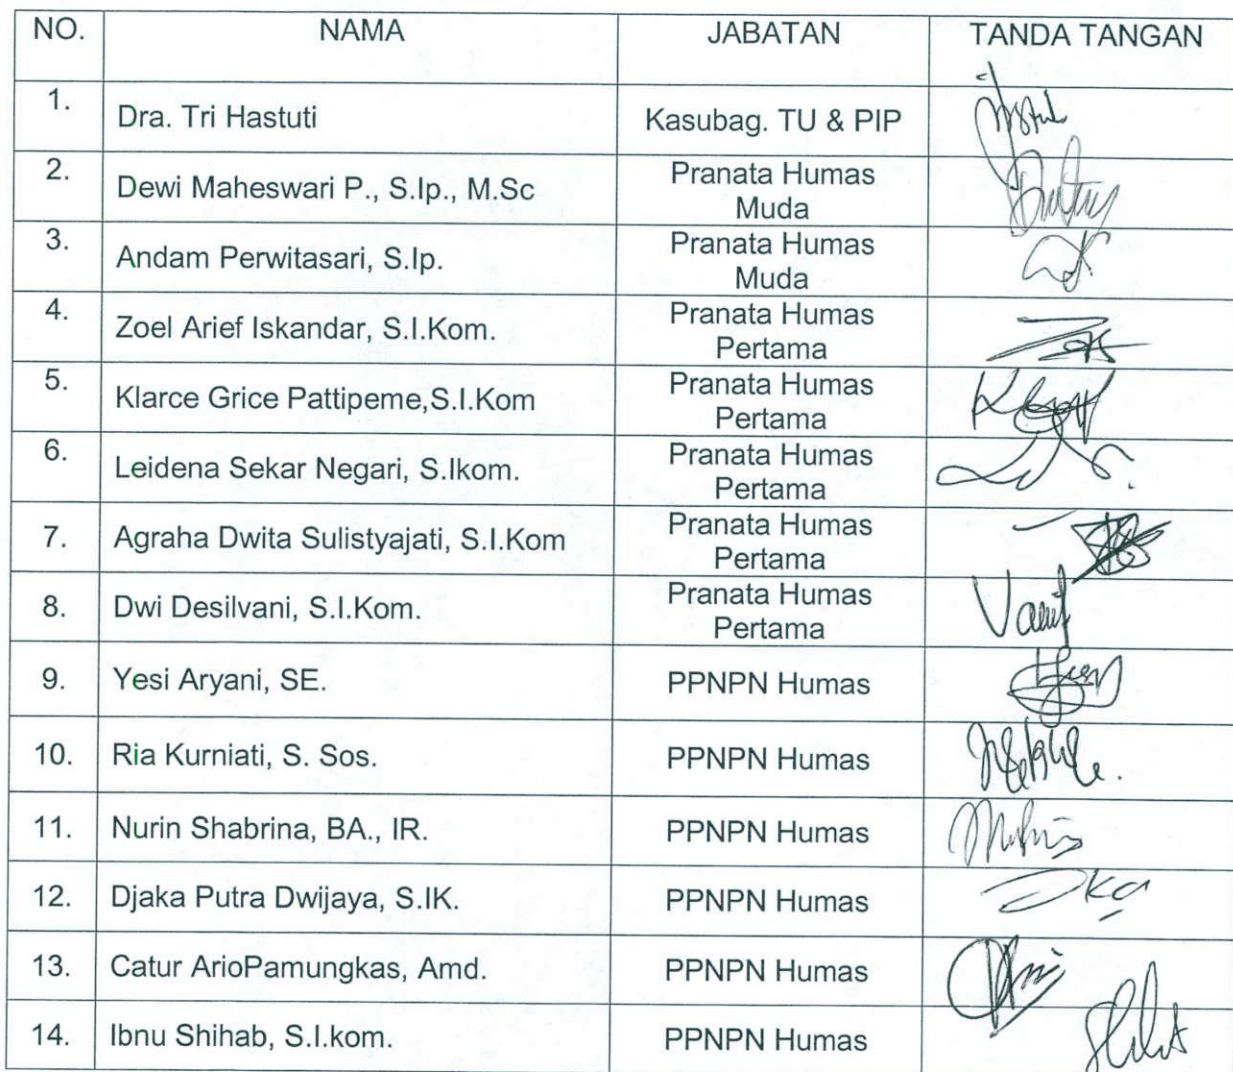 NO. NAMA JABATAN TANDA TANGAN
1. Dra. Tri Hastuti Kasubag. TU & PIP
2. Dewi Maheswari P., S.Ip., M.Sc Pranata Humas
Muda
3. Andam Perwitasari, S.Ip. Pranata Humas
Muda
4. Zoel Arief Iskandar, S.I.Kom. Pranata Humas
Pertama
5. Klarce Grice Pattipeme,S.I.Kom Pranata Humas
Pertama
6. Leidena Sekar Negari, S.Ikom. Pranata Humas
Pertama
7. Agraha Dwita Sulistyajati, S.I.Kom Pranata Humas
Pertama
8. Dwi Desilvani, S.I.Kom. Pranata Humas
Pertama
9. Yesi Aryani, SE. PPNPN Humas
10. Ria Kurniati, S. Sos. PPNPN Humas
11. Nurin Shabrina, BA., IR. PPNPN Humas
12. Djaka Putra Dwijaya, S.IK. PPNPN Humas
13. Catur ArioPamungkas, Amd. PPNPN Humas
14. Ibnu Shihab, S.I.kom. PPNPN Humas